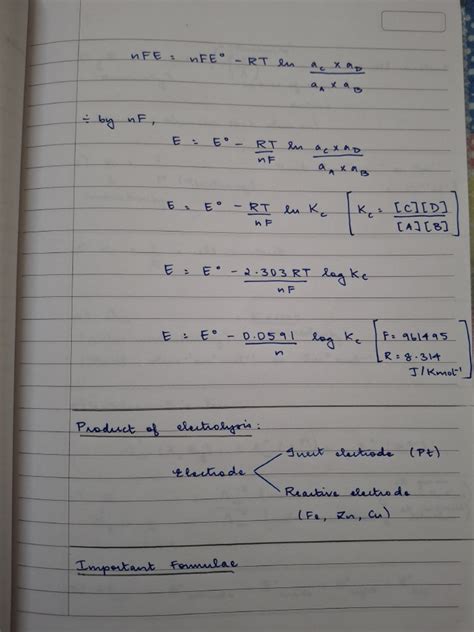 nFE = nFE° - RT ln a_C × a_D / a_A × a_B
÷ by nF,
E = E° - RT/nF ln a_C × a_D / a_A × a_B
E = E° - RT/nF ln K_c [K_c = [C][D] / [A][B]]
E = E° - 2.303RT/nF log K_c
E = E° - 0.0591/n log K_c [F = 961495
R = 8.314
J/Kmol⁻¹]
Product of electrolysis:
Inert electrode (Pt)
Electrode
Reactive electrode
(Fe, Zn, Cu)
Important Formulae